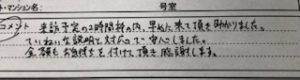 ト・マンション名) 号室
コメント 来訪予定の2時間枠の内、早めに来て頂き助かりました。
ていねいな説明で対応で安心しました。
金額もお気持ちを付けて頂き感謝します。